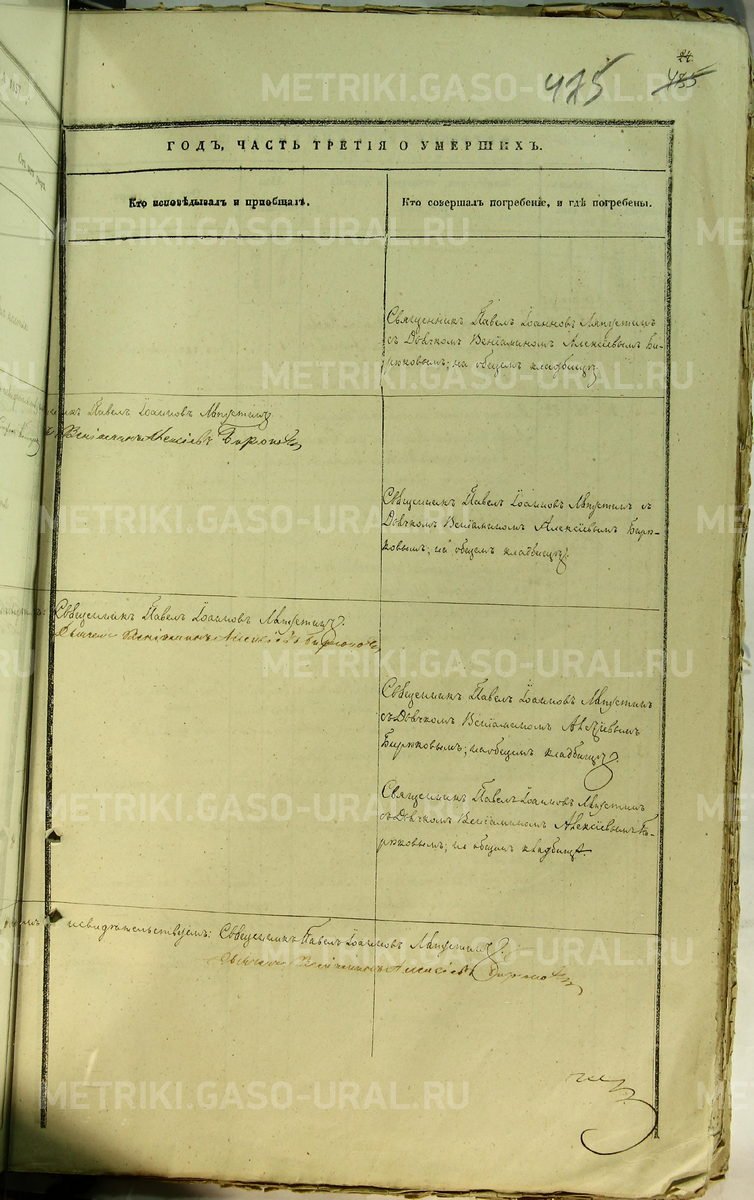 24
475
435
ГОДЪ, ЧАСТЬ ТРЕТІЯ О УМЕРШИХЪ.
Кто исповѣдывалъ и пріобщалъ.
Кто совершалъ погребеніе, и гдѣ погребены.
Священникъ Павелъ Іоанновъ
съ Дьячкомъ Веніаминомъ Алексіевымъ Би-
рюковымъ; на общемъ кладбищѣ.
Павелъ Іоанновъ
Веніаминъ Алексіевъ Бирюковъ
Священникъ Павелъ Іоанновъ съ
Дьячкомъ Веніаминомъ Алексіевымъ Бирю-
ковымъ; на общемъ кладбищѣ.
Священникъ Павелъ Іоанновъ
Дьячекъ Веніаминъ Алексіевъ Бирюковъ
Священникъ Павелъ Іоанновъ
съ Дьячкомъ Веніаминомъ Алексіевымъ
Бирюковымъ; на общемъ кладбищѣ.
Священникъ Павелъ Іоанновъ
съ Дьячкомъ Веніаминомъ Алексіевымъ Би-
рюковымъ; на общемъ кладбищѣ.
свидѣтельствуемъ: Священникъ Павелъ Іоанновъ
Дьячекъ Веніаминъ Алексіевъ Бирюковъ
METRIKI.GASO-URAL.RU